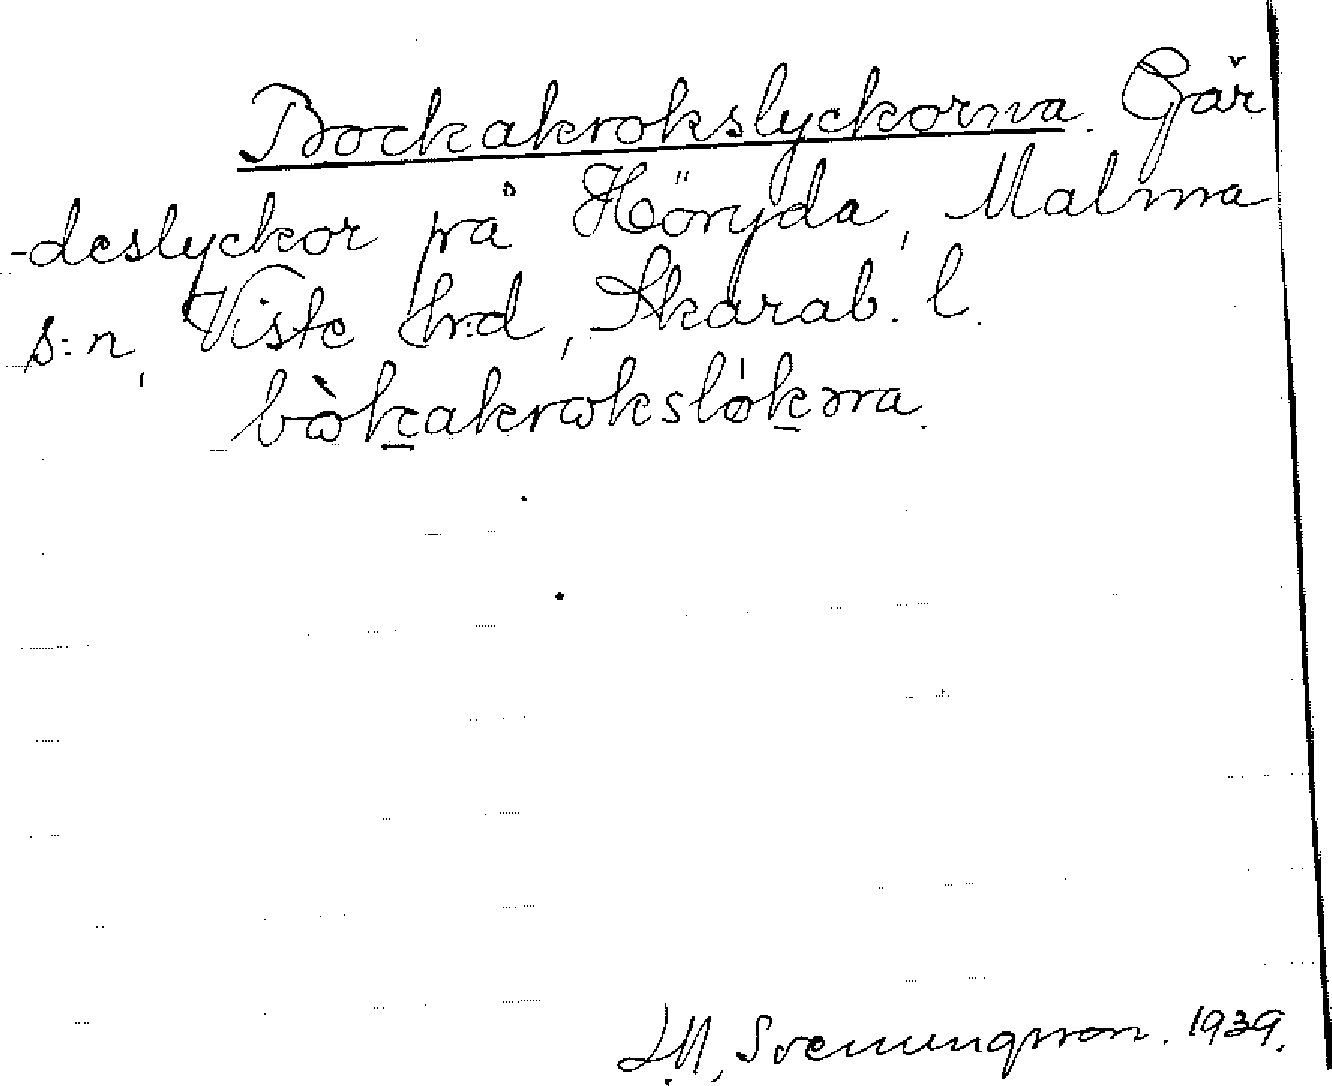 Bockakrokslyckorna. Gär
-deslyckor på Höryda, Malma
s:n, Viste hrd, Skarab. l.
bòkakrokslókɔrna.
J.M. Svenungsson. 1939.